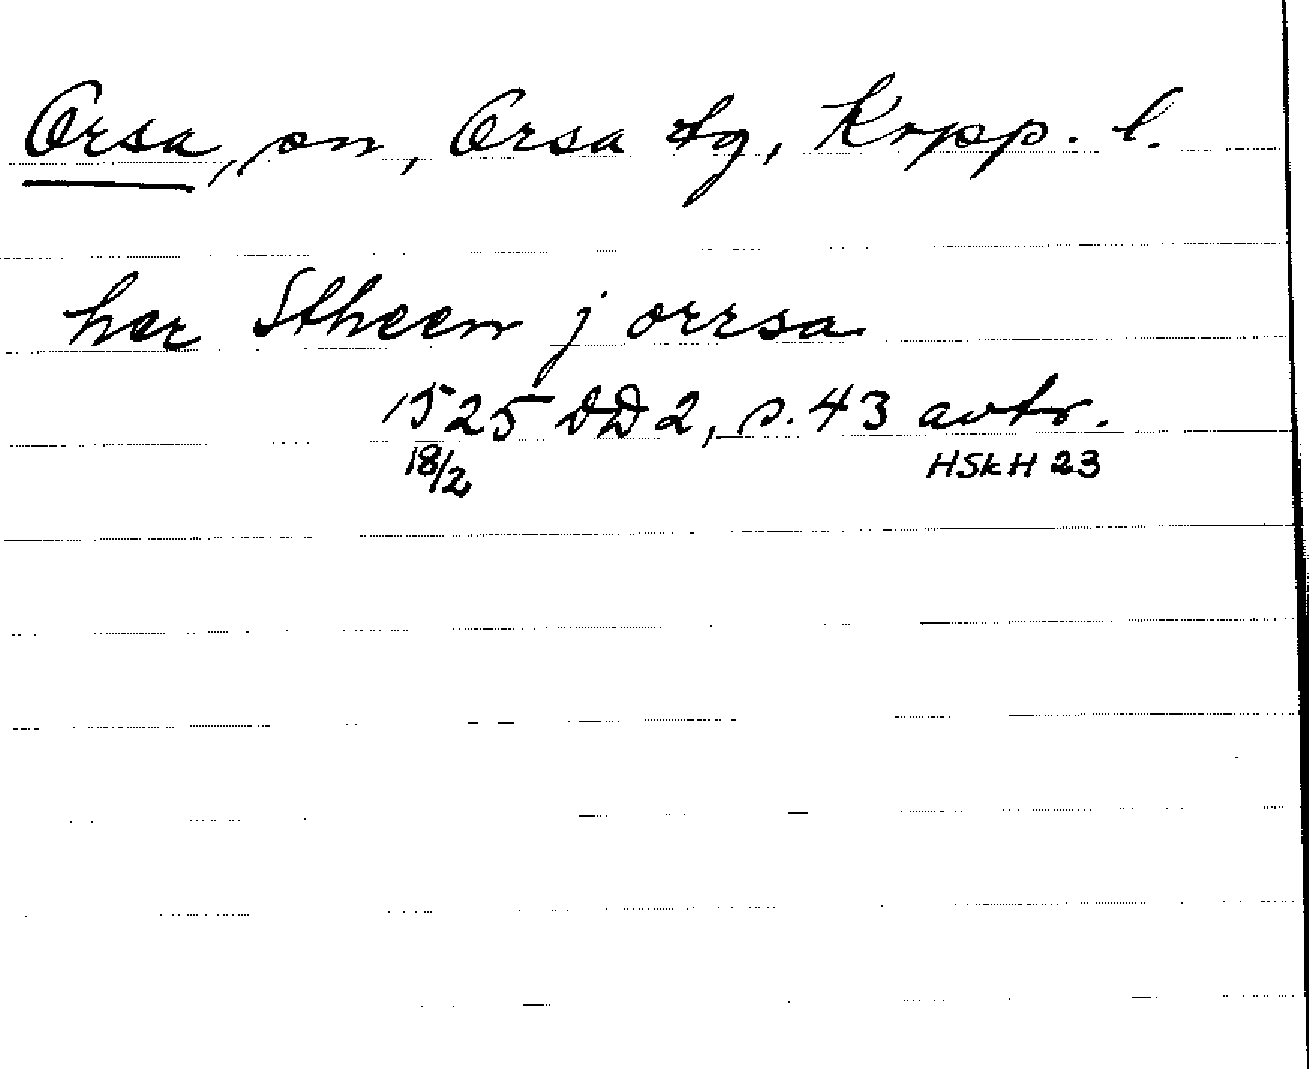 Orsa, sn, Orsa tg, Kopp. l.
her Stheen j orrsa
1525 DD 2, s. 43 avtr.
18/2 HSkH 23